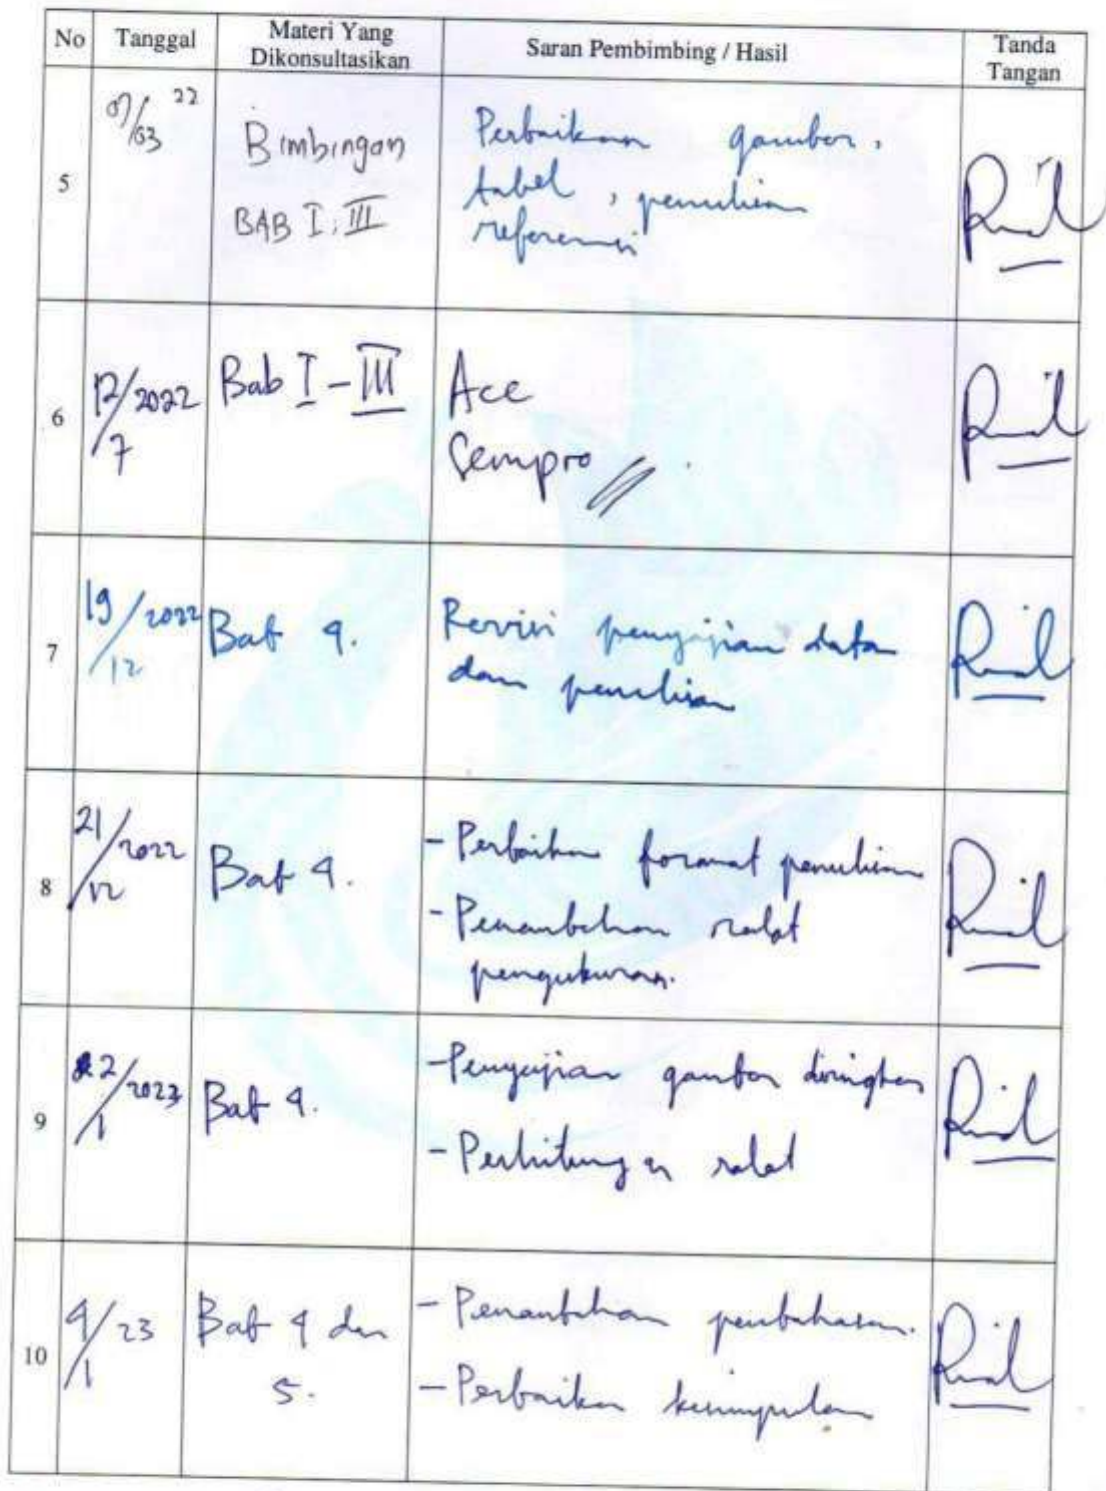 No Tanggal Materi Yang Dikonsultasikan Saran Pembimbing / Hasil Tanda Tangan
5
07/03 22
Bimbingan
BAB I, III
Perbaikan gambar,
tabel, penulisan
referensi
6
12/2022
7
Bab I - III
Acc
Sempro
7
19/2022
12
Bab 4.
Revisi penyajian data
dan penulisan
8
21/2022
12
Bab 4.
- Perbaikan format penulisan
- Penambahan ralat
pengukuran.
9
2/2023
1
Bab 4.
- Penyajian gambar diringkas
- Perhitungan ralat
10
4/23
1
Bab 4 dan
5.
- Penambahan pembahasan.
- Perbaikan kesimpulan